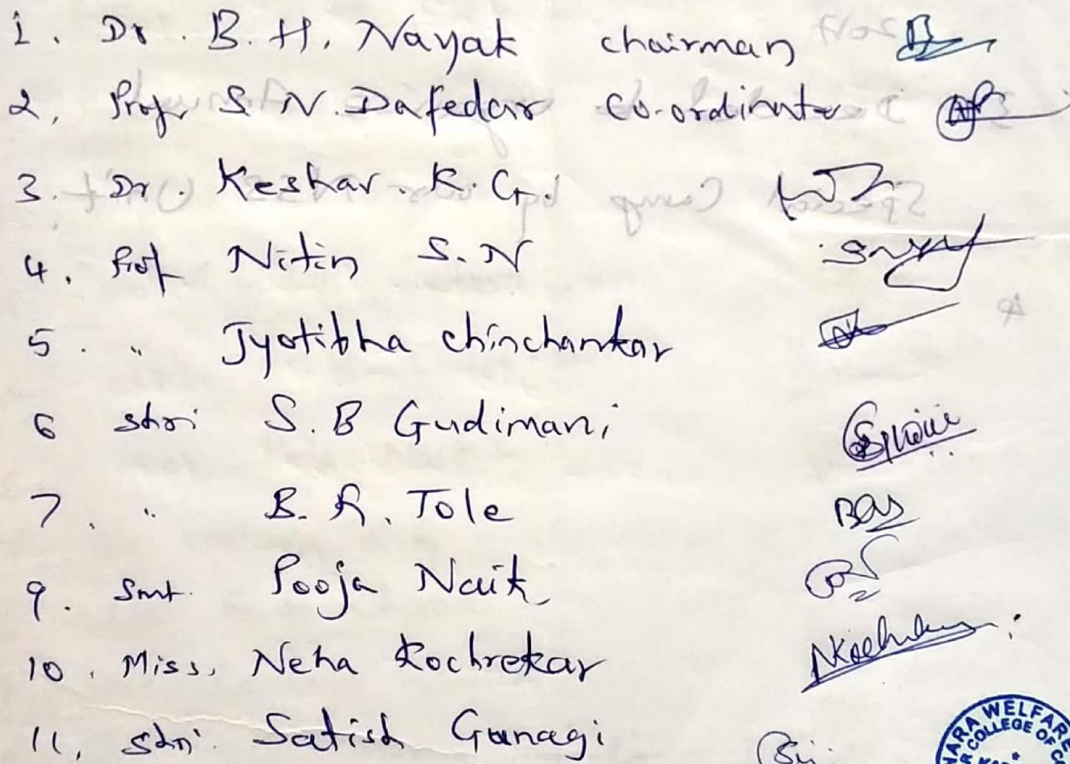 1. Dr. B. H. Nayak chairman
2, Prof, S. N. Dafedar Co-ordinator
3. Dr. Keshav. K. G.
4, Prof Nitin S. N
5. " Jyotibha chinchankar
6 shri S. B Gudimani
7. " B. R. Tole
9. Smt. Pooja Naik
10. Miss, Neha Kochrekar
11, shri Satish Gunagi
WELFARE
COLLEGE OF